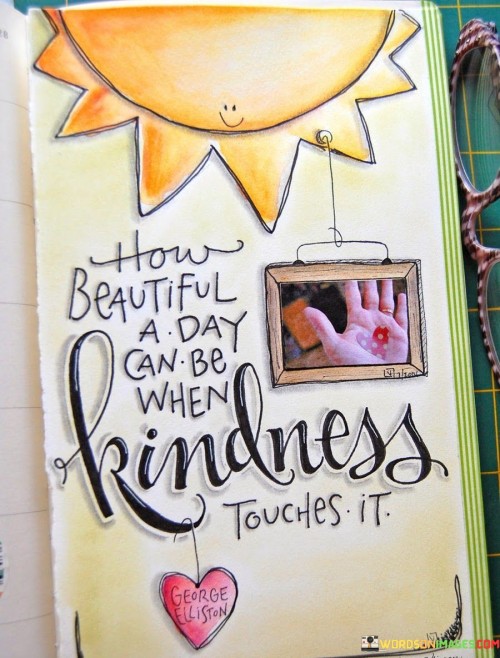 How
BEAUTIFUL
A·DAY
CAN·BE
WHEN
kindness
TOUCHES·IT.
GEORGE
ELLISTON
WORDSONIMAGES.COM